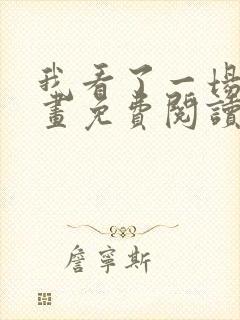 我看了一場
畫免費閱讀
詹寧斯